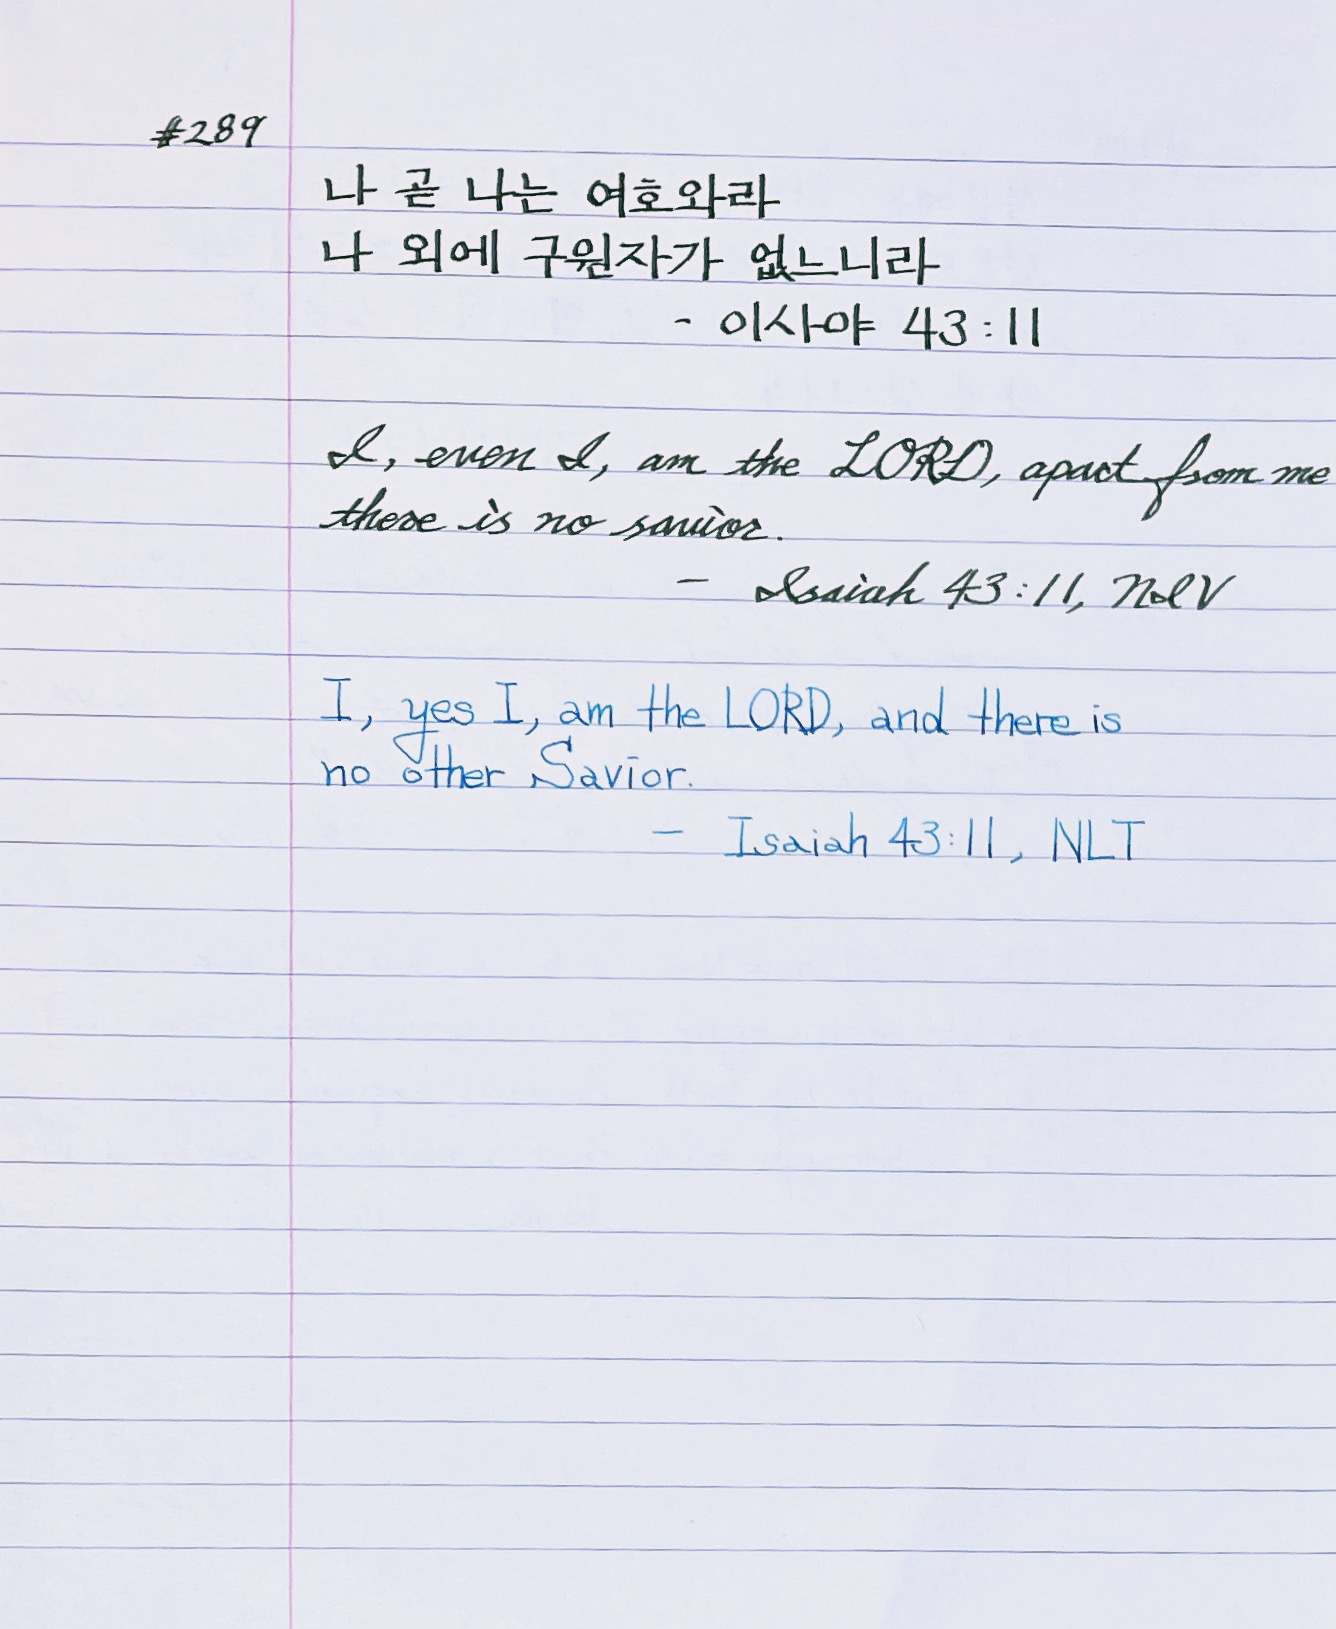 #289
나 곧 나는 여호와라
나 외에 구원자가 없느니라
- 이사야 43:11
I, even I, am the LORD, apart from me
there is no savior.
- Isaiah 43:11, NIV
I, yes I, am the LORD, and there is
no other Savior.
- Isaiah 43:11, NLT